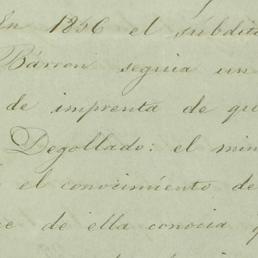 En 1856 el súbdito
Barron seguia un
de imprenta de que
Degollado: el min
el conocimiento de
de ella conocia